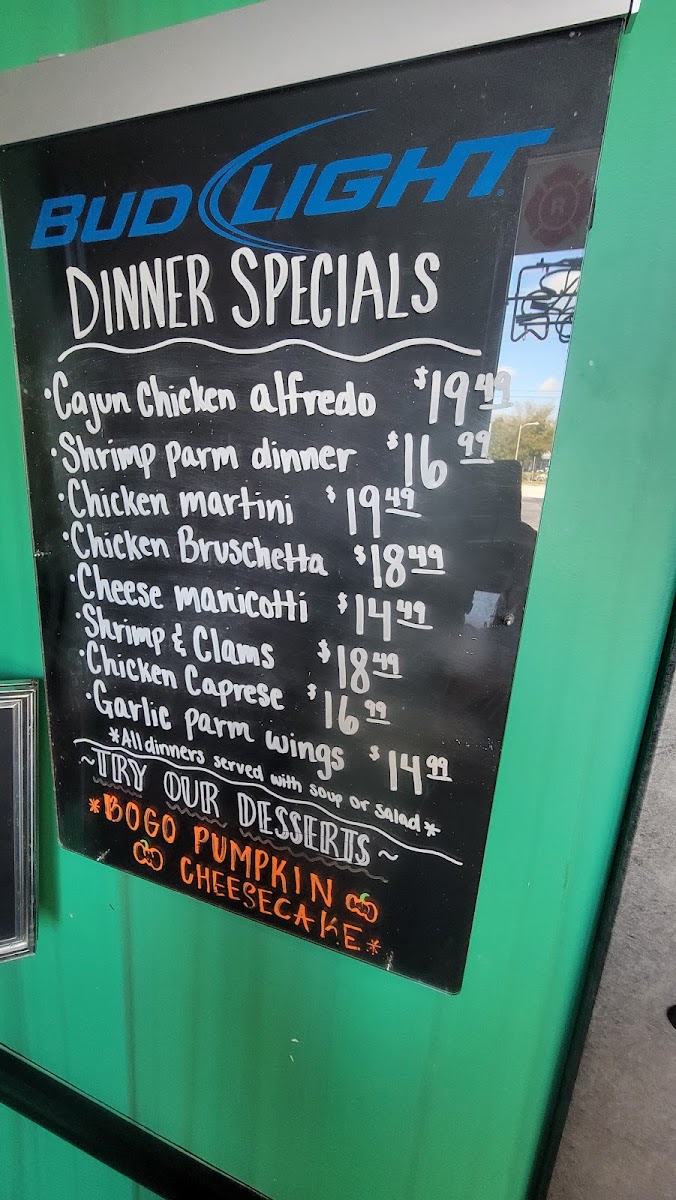 BUD LIGHT
DINNER SPECIALS
·Cajun Chicken alfredo $19.49
·Shrimp parm dinner $16.99
·Chicken martini $19.49
·Chicken Bruschetta $18.49
·Cheese manicotti $14.49
·Shrimp & Clams $18.49
·Chicken Caprese $16.99
·Garlic parm wings $14.99
*All dinners served with soup or salad*
~TRY OUR DESSERTS~
*BOGO PUMPKIN
CHEESECAKE*